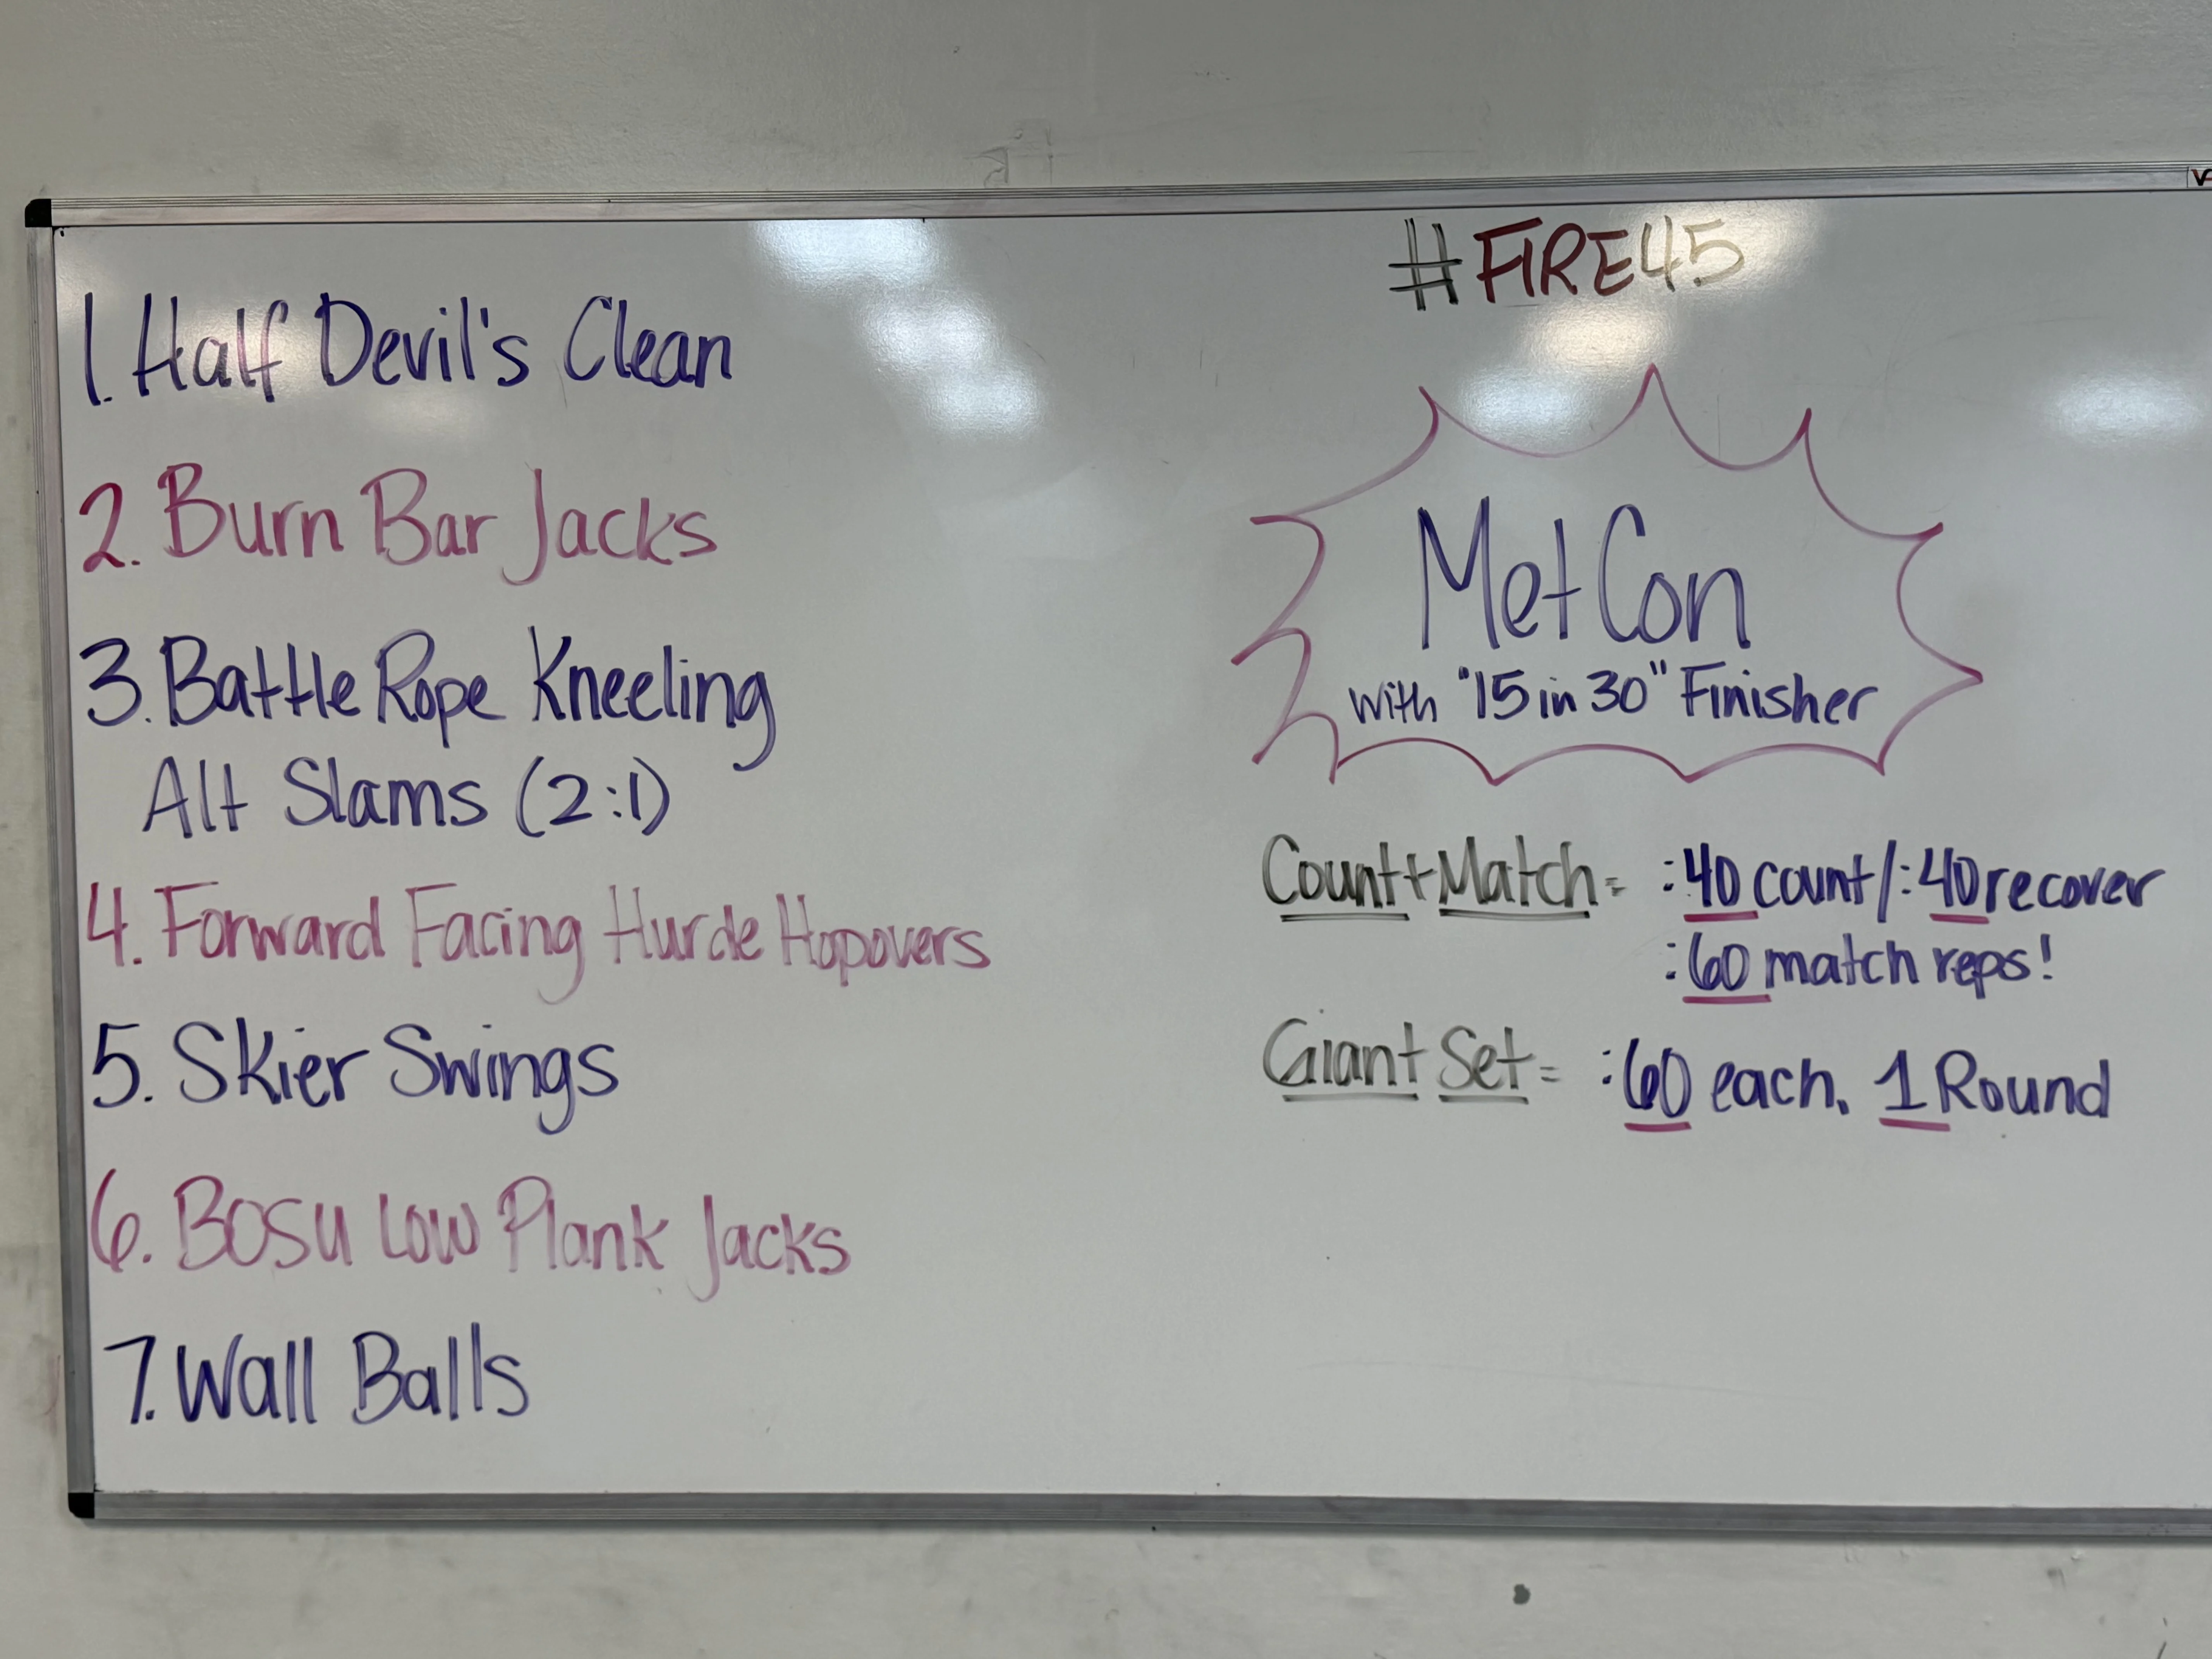 1. Half Devil's Clean
2. Burn Bar Jacks
3. Battle Rope Kneeling
Alt Slams (2:1)
4. Forward Facing Hurde Hopovers
5. Skier Swings
6. BOSU Low Plank Jacks
7. Wall Balls
#FIRE45
MetCon
with "15 in 30" Finisher
Count+Match= :40 count/:40 recover
:60 match reps!
Giant Set= :60 each, 1 Round